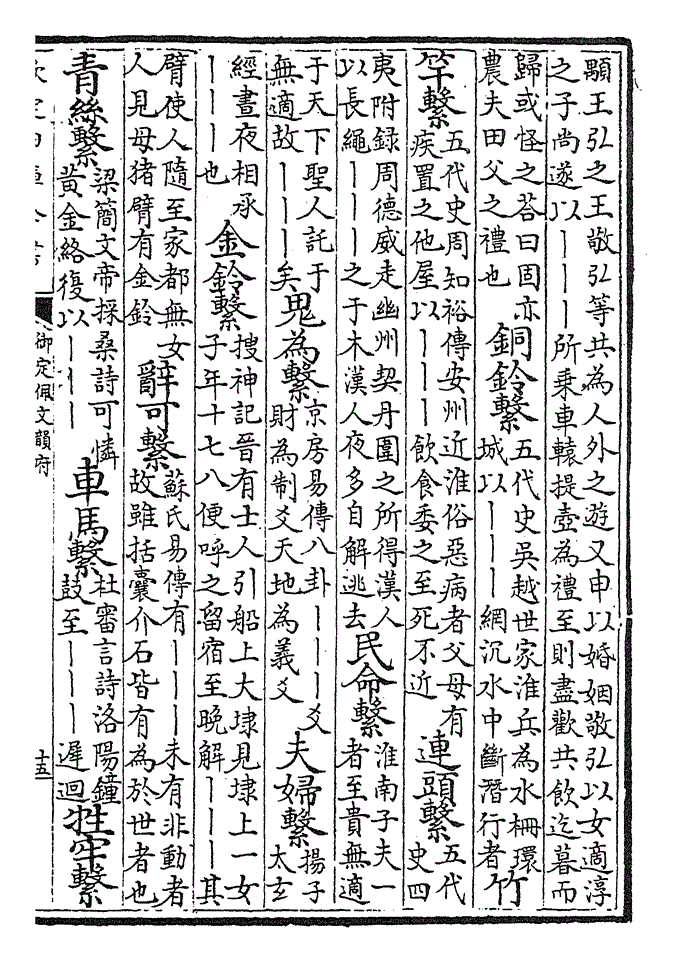 顒王弘之王敬弘等共為人外之遊又申以婚姻敬弘以女適淳
之子尚遂以｜｜｜所乘車轅提壺為禮至則盡歡共飲迄暮而
歸或怪之荅曰固亦
農夫田父之禮也
銅鈴繫
五代史吳越世家淮兵為水柵環
城以｜｜｜網沉水中斷潛行者
竹
竿繫
五代史周知裕傳安州近淮俗惡病者父母有
疾置之他屋以｜｜｜飲食委之至死不近
連頭繫
五代
史四
夷附錄周德威走幽州契丹圍之所得漢人
以長繩｜｜｜之于木漢人夜多自解逃去
民命繫
淮南子夫一
者至貴無適
于天下聖人託于
無適故｜｜｜矣
鬼為繫
京房易傳八卦｜｜｜爻
財為制爻天地為義爻
夫婦繫
揚子
太玄
經晝夜相承
｜｜｜也
金鈴繫
搜神記晉有士人引船上大埭見埭上一女
子年十七八便呼之留宿至晚解｜｜｜其
臂使人隨至家都無女
人見母猪臂有金鈴
辭可繫
蘇氏易傳有｜｜｜未有非動者
故雖括囊介石皆有為於世者也
青絲繫
梁簡文帝採桑詩可憐
黃金絡復以｜｜｜
車馬繫
杜審言詩洛陽鐘
鼓至｜｜｜遲迴
牲牢繫
欽定四庫全書
御定佩文韻府
十五